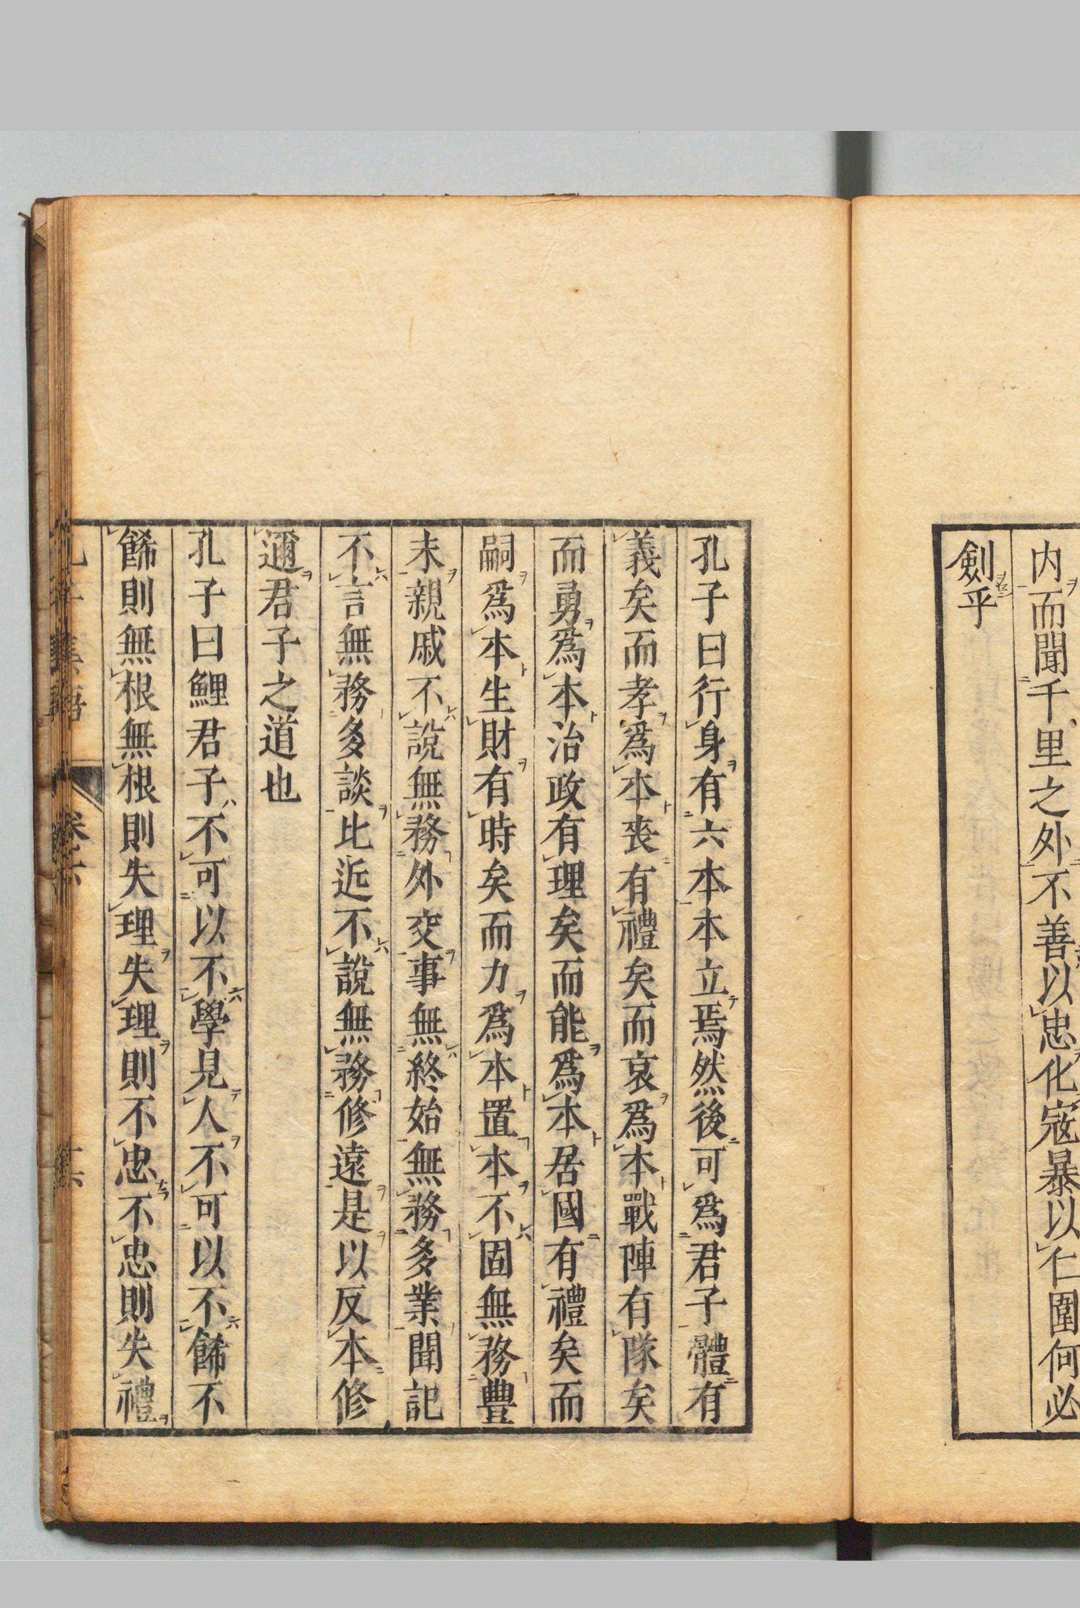 内而聞千里之外不善以忠化寇暴以仁圍何必
劍乎
孔子曰行身有六本本立焉然後可爲君子體有
義矣而孝爲本喪有禮矣而哀爲本戰陣有隊矣
而勇爲本治政有理矣而能爲本居國有禮矣而
嗣爲本生財有時矣而力爲本置本不固無務豐
末親戚不說無務外交事無終始無務多業聞記
不言無務多談比近不說無務修遠是以反本修
邇君子之道也
孔子曰鯉君子不可以不學見人不可以不餙不
餙則無根無根則失理失理則不忠不忠則失禮
卷六